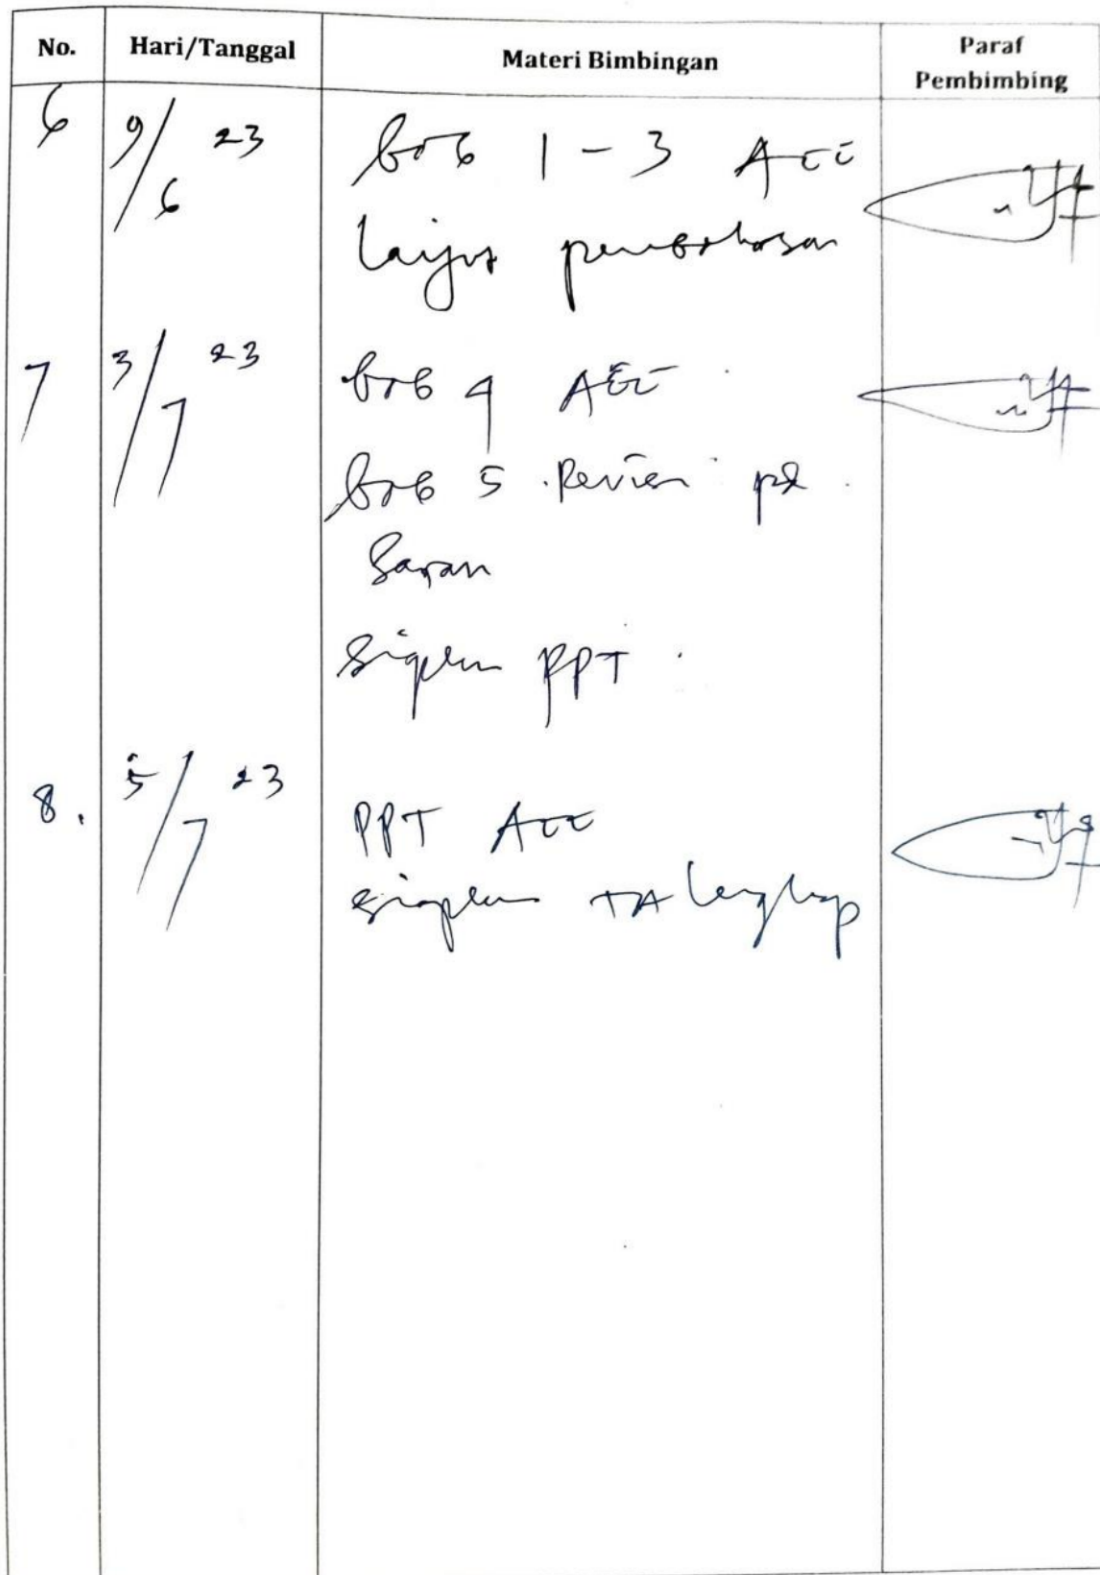 No. Hari/Tanggal Materi Bimbingan Paraf Pembimbing
6 9/6 23 bab 1 - 3 Acc
lanjut pembahasan
7 3/7 23 bab 4 Acc
bab 5 Revisi pd
Saran
Siapkan PPT
8. 5/7 23 PPT Acc
siapkan TA lengkap